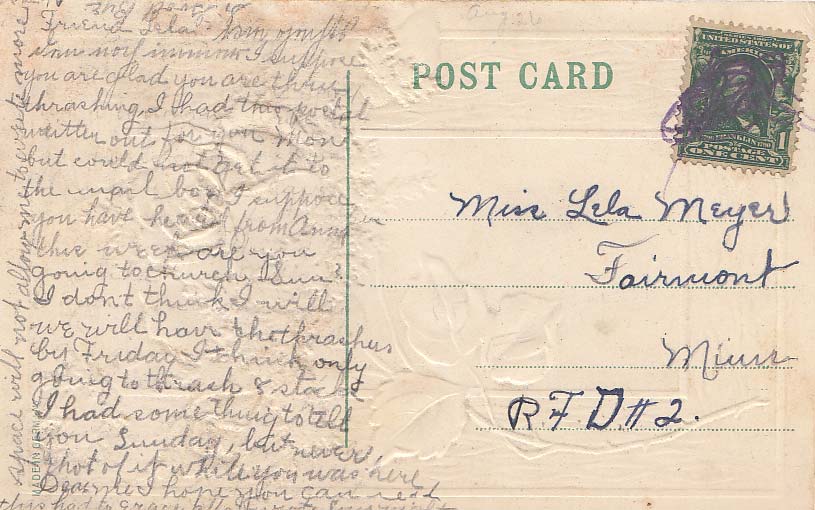 Aug 26
Friend Lela
I suppose
you are glad you are thru
thrashing, I had this postal
written out for you Mon
but could not get it to
the mail box I suppose
you have heard from Anna
this week are you
going to church Sun?
I dont think I will
we will have thethrashers
by Friday I think, only
going to thrash 8 stacks
I had some thing to tell
you Sunday, but never
thot of it while you was here
Dear me I hope you can read
this had to
space will not allow me to write more
MADE IN GERMANY
POST CARD
UNITED STATES OF
AMERICA
FRANKLIN 1790
POSTAGE
1
ONE CENT
Miss Lela Meyer
Fairmont
Minn
R.F.D #2.